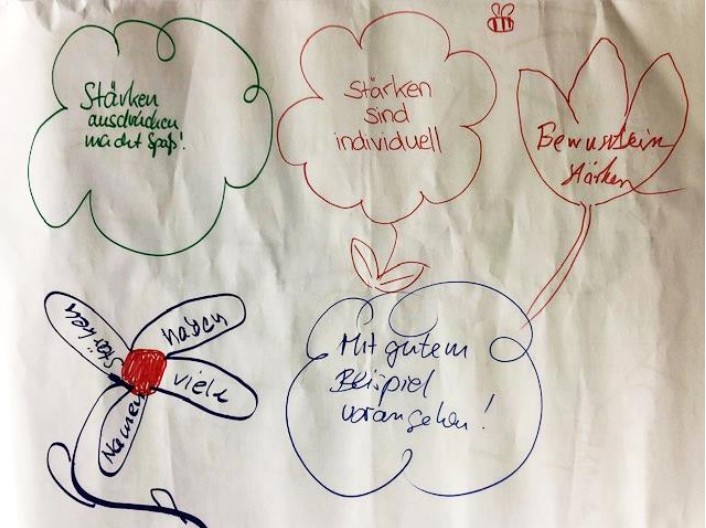 Stärken
ausdrücken
macht Spaß!
Stärken
sind
individuell
Bewusstsein
stärken
Stärken
haben
viele
Namen
Mit gutem
Beispiel
vorangehen!